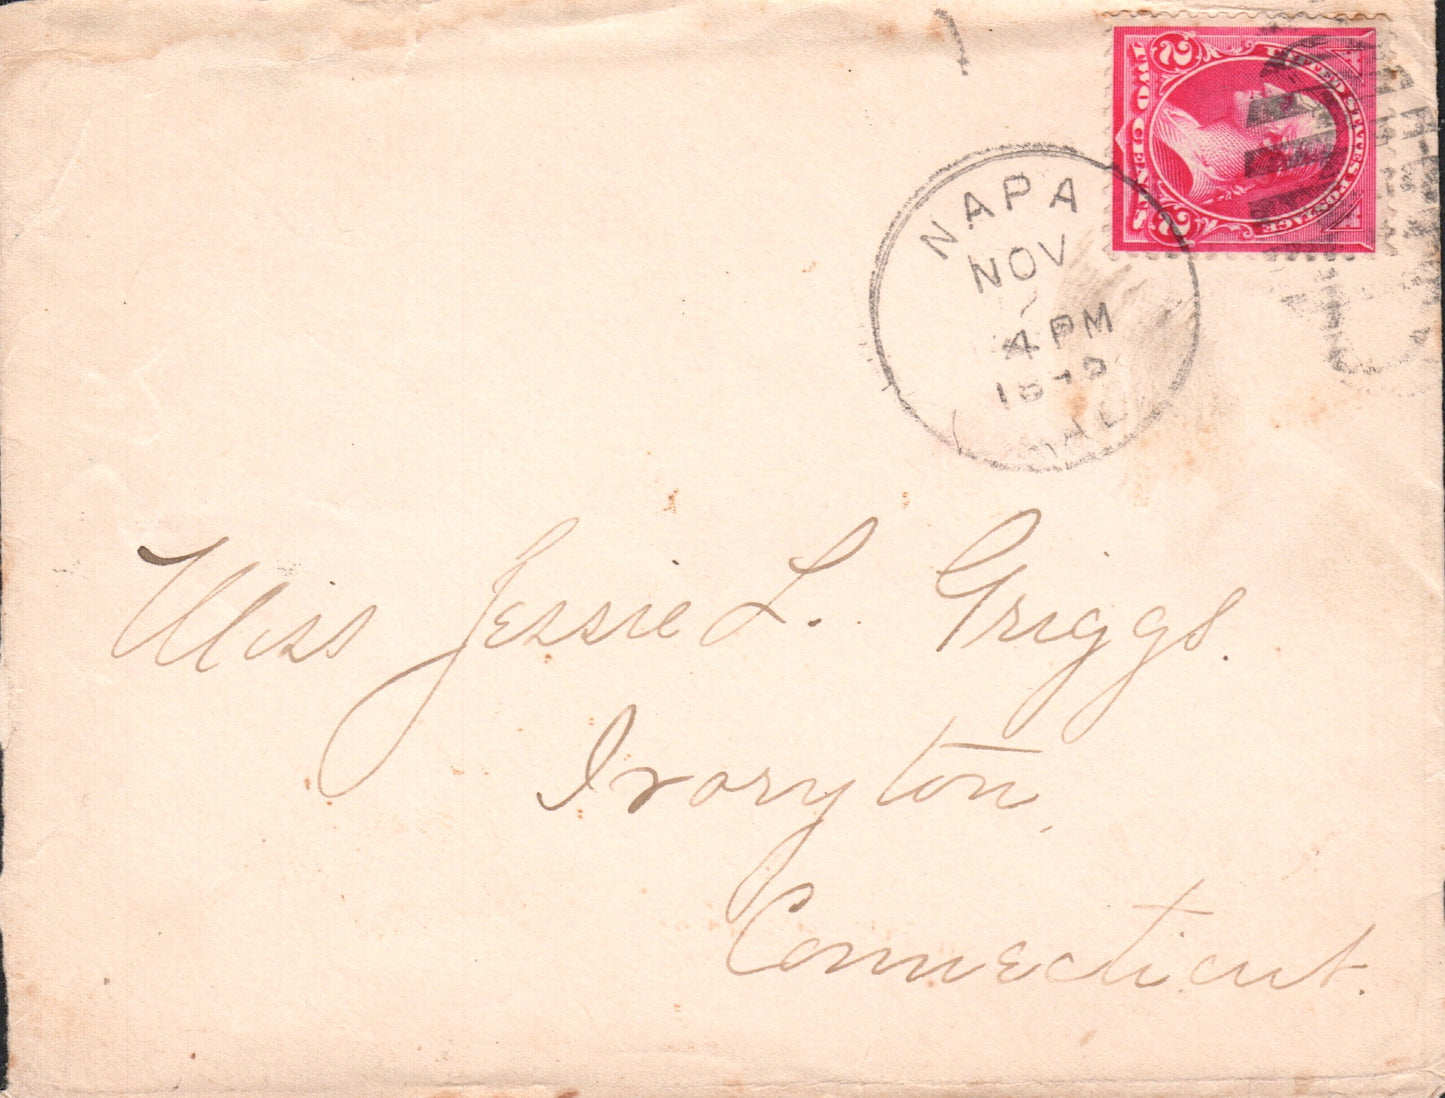 UNITED STATES POSTAGE
2 2
TWO CENTS
NAPA
NOV
4 PM
CAL
Miss Jessie L. Griggs.
Ivoryton,
Connecticut.